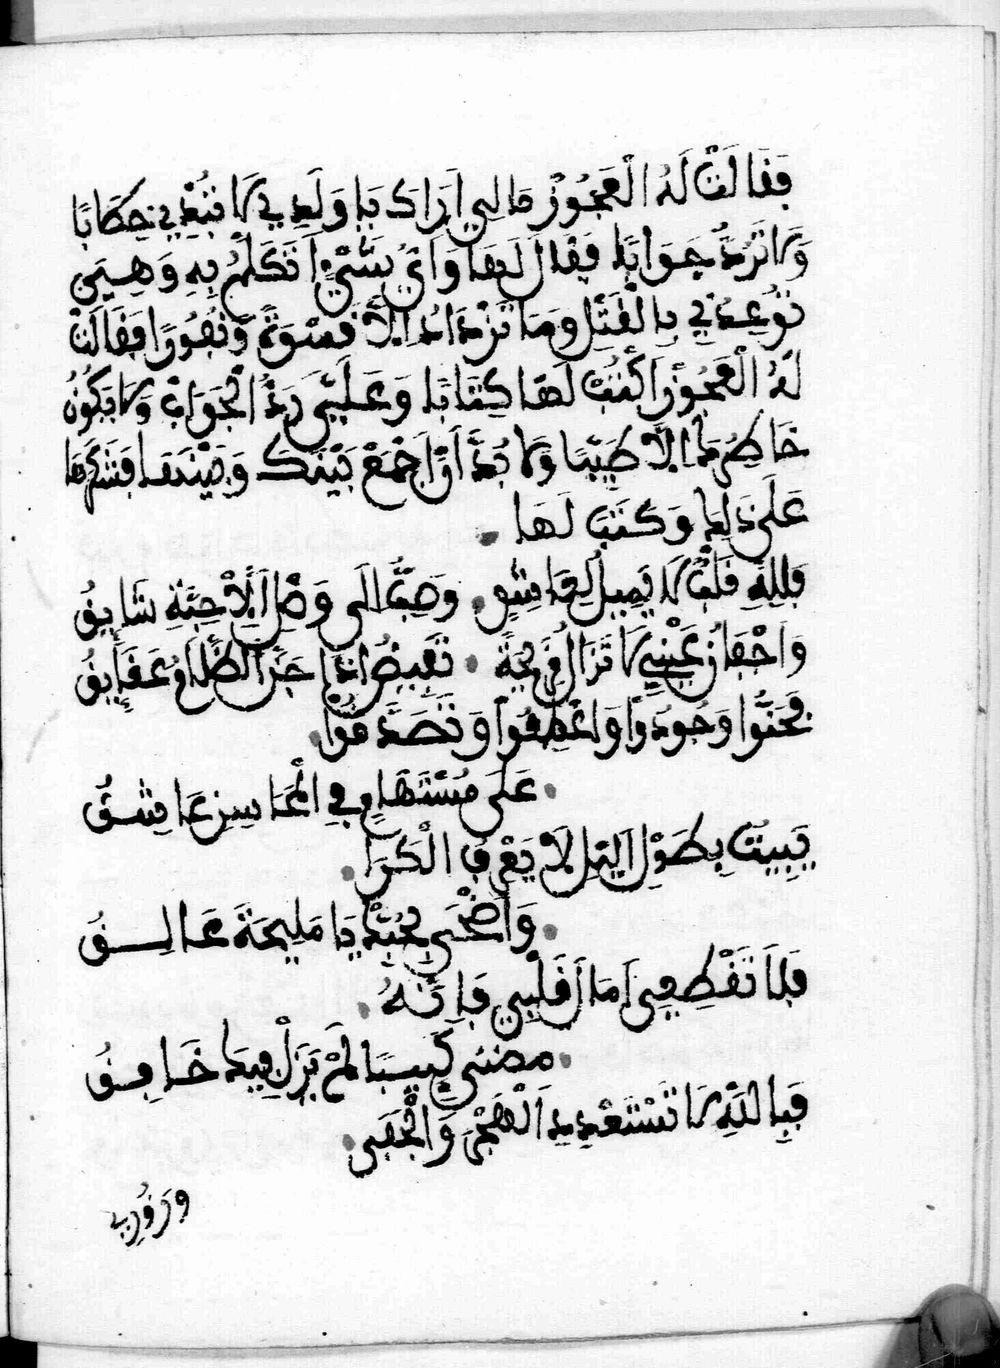 فَقَالَتْ لَهُ الْعَجُوزُ مَا لِي أَرَاكَ يَا وَلَدِي لَا تُبْدِي خِطَابًا
وَلَا تَرُدُّ جَوَابًا فَقَالَ لَهَا وَأَيُّ شَيْءٍ أَتَكَلَّمُ بِهِ وَهِيَ
تُوعِدُنِي بِالْقَتْلِ وَمَا تَزْدَادُ إِلَّا قَسْوَةً وَنُفُورًا فَقَالَتْ
لَهُ الْعَجُوزُ اكْتُبْ لَهَا كِتَابًا وَعَلَيَّ رَدُّ الْجَوَابْ وَلَا يَكُونُ
خَاطِرُكَ إِلَّا طَيِّبًا وَلَا بُدَّ أَنْ أَجْمَعَ بَيْنَكَ وَبَيْنَهَا فَشَكَرَهَا
عَلَى ذَلِكَ وَكَتَبَ لَهَا
فَلِلَّهِ قَلْبٌ لَا يَمِيلُ لِعَاشِقٍ وَصَبٌّ إِلَى وَصْلِ الْأَحِبَّةِ شَايِقُ
وَأَجْفَانُ عَيْنِي لَا تَزَالُ قَرِيحَةً تَفِيضُ إِذَا جَنَّ الظَّلَامُ عَقَايِقُ
فَحِنُّوا وَجُودُوا وَاعْطِفُوا وَتَصَدَّقُوا
عَلَى مُسْتَهَامٍ فِي الْمَحَاسِنِ عَاشِقُ
يَبِيتُ بِطَوْلِ اللَّيْلِ لَا يَعْرِفُ الْكَرَا
وَأَضْحَى بِحُبِّكِ يَا مَلِيحَةَ عَالِقُ
فَلَا تَقْطَعِي آمَالَ قَلْبِي فَإِنَّهُ
مضنى كَئِيبًا لَمْ يَزَلْ فِيكَ خَافِقُ
فَبِاللَّهِ لَا تَسْتَعْبِدِ الْهَجْرَ وَالْجَفَى
وزوري